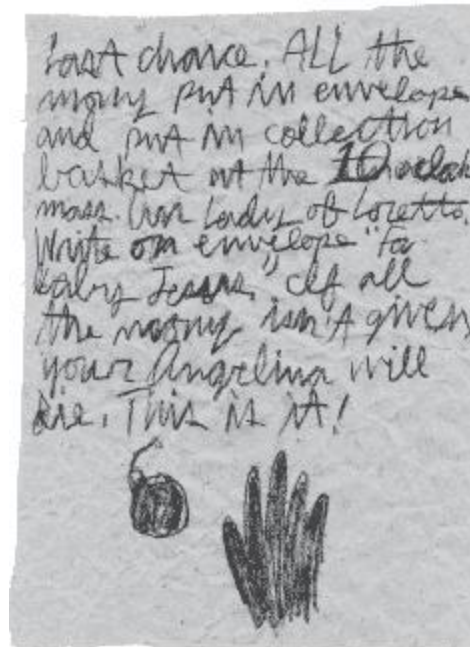 Last chance. ALL the
mony put in envelope
and put in collection
basket at the 10 oclok
mass. Our Lady of Loretto.
Write on envelope "For
baby Jesus." If all
the mony isn't given
your Angelina will
die. This is it!